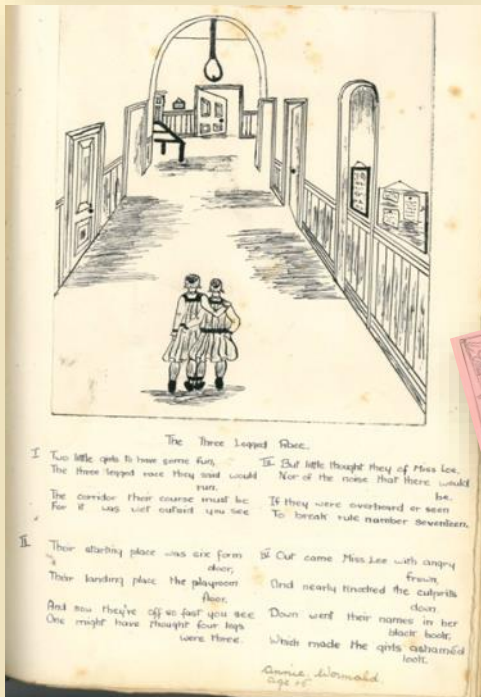 The Three Legged Race.
I Two little girls to have some fun,
The three legged race they said would
run.
The corridor their course must be
For it was wet outside you see
II Their starting place was six form
door,
Their landing place the playroom
floor,
And now they're off so fast you see
One might have thought four legs
were three.
III But little thought they of Miss Lee,
Nor of the noise that there would
be.
If they were overheard or seen
To break rule number seventeen.
IV Out came Miss Lee with angry
frown,
And nearly knocked the culprits
down
Down went their names in her
black book,
Which made the girls ashamed
look.
Annie Wormald.
age 15